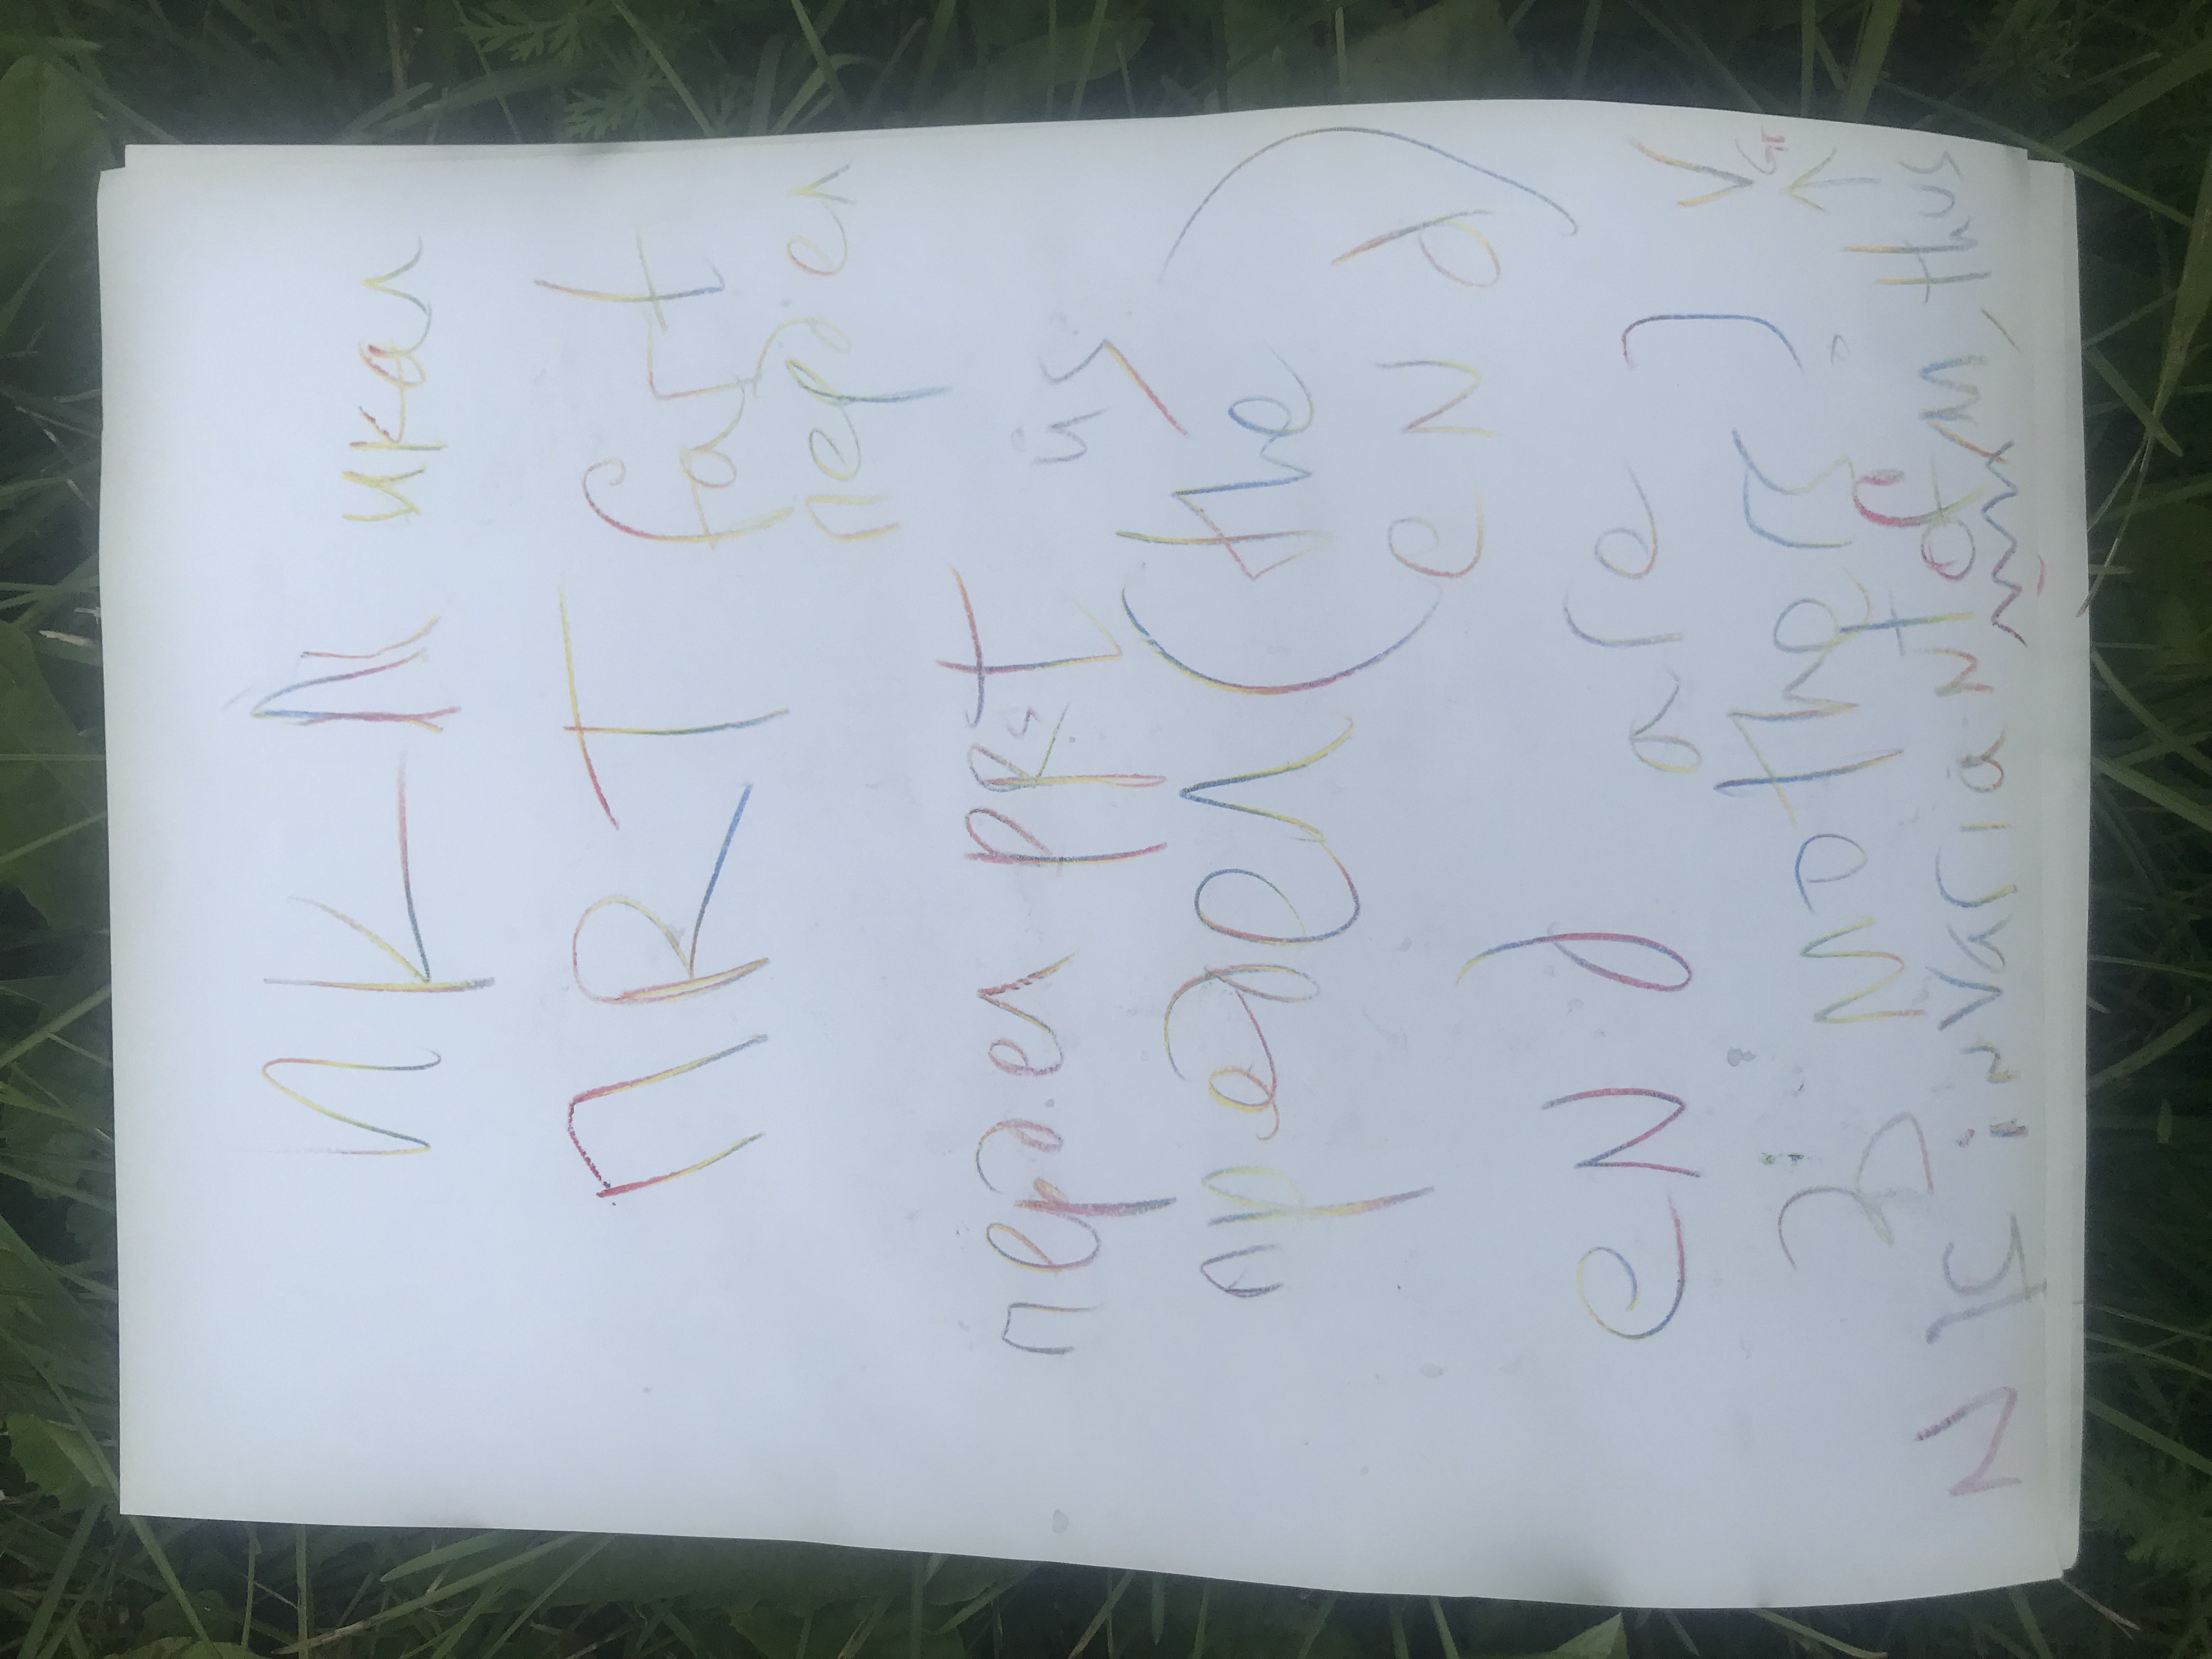 ИКЛ икал
ПRT fart
пердел
пердел pRst is
предел (the
end)
eNd are
3 Mothers
N is invariant of m, thus